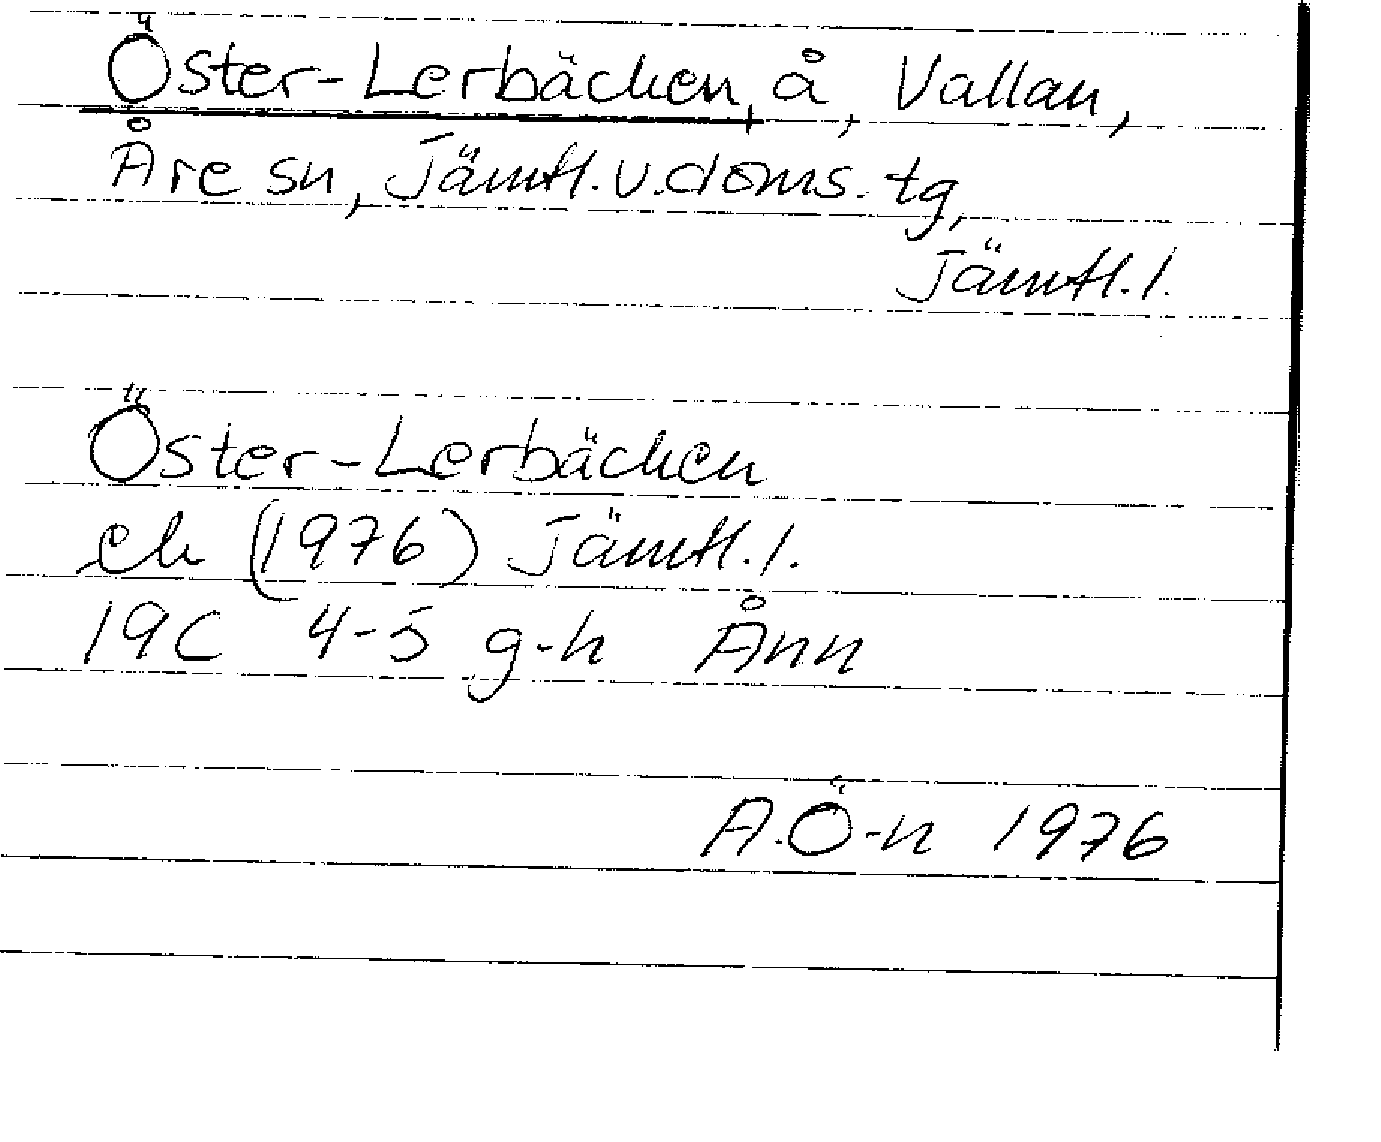 Öster-Lerbäcken, å, Vallan,
Åre sn, Jämtl.v.doms.tg,
Jämtl.l.
Öster-Lerbäcken
ek (1976) Jämtl.l.
19C 4-5 g-h Ånn
A.Ö-n 1976